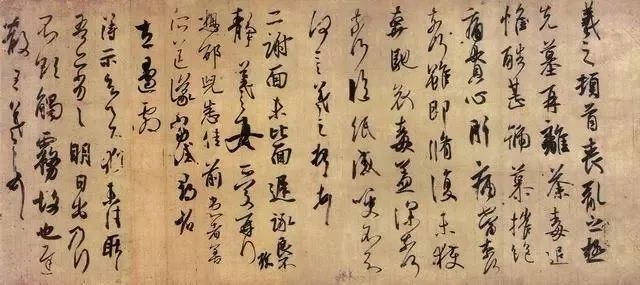 羲之頓首喪亂之極
先墓再離荼毒追
惟酷甚號慕摧絕
痛貫心肝痛當奈何
奈何雖即脩復未獲
奔馳哀毒益深奈何
奈何臨紙感哽不知
何言羲之頓首頓首
二謝面未比面遲詠良
靜羲之女愛再拜
想邵兒悉佳前患者善
左邊劇
得示知足下猶未佳耿
吾亦劣劣明日出乃行
不欲觸霧故也遲
散王羲之頓首